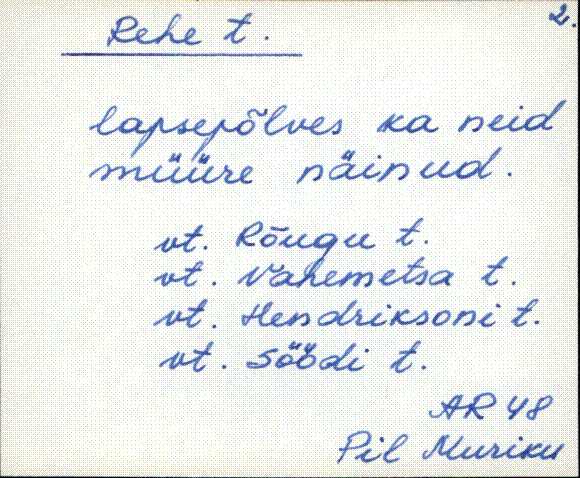 2.
Rehe t.
lapsepõlves ka neid
müüre näinud.
vt. Rõugu t.
vt. Vahemetsa t.
vt. Hendriksoni t.
vt. Söödi t.
AR 48
Pil Muriku